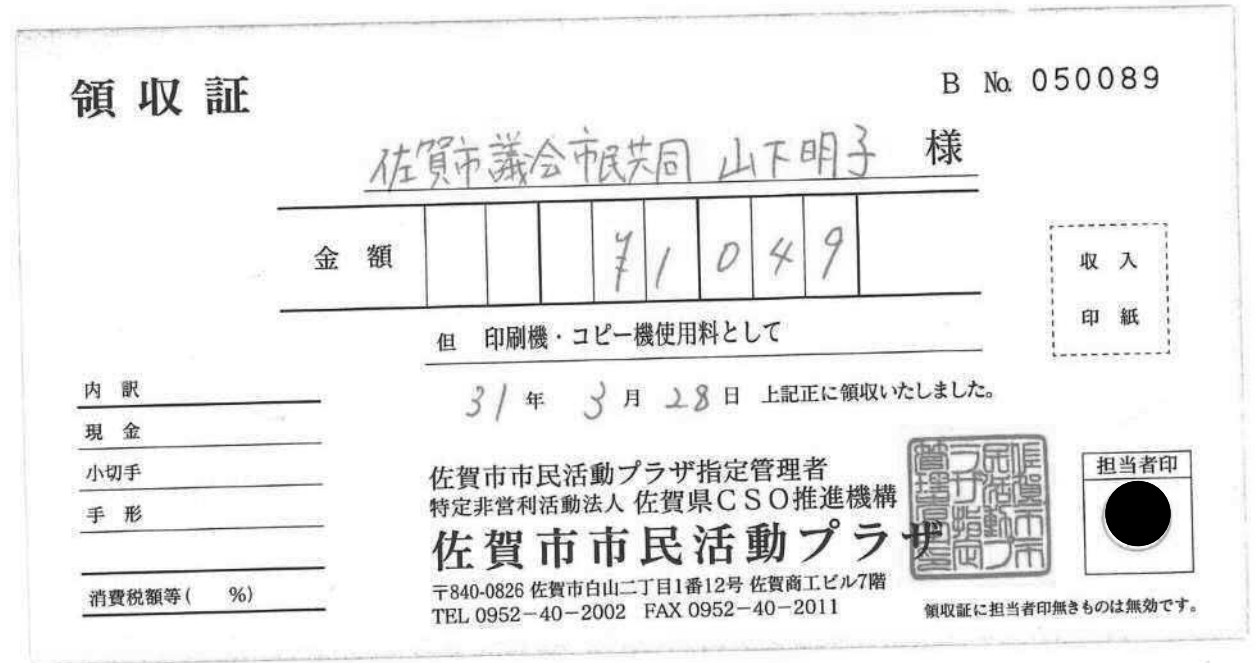 領収証
B № 050089
佐賀市議会市民共同 山下明子 様
金額 ¥1049
但 印刷機・コピー機使用料として
収入
印紙
31年 3月 28日 上記正に領収いたしました。
内訳
現金
小切手
手形
消費税額等( %)
佐賀市市民活動プラザ指定管理者
特定非営利活動法人 佐賀県CSO推進機構
佐賀市市民活動プラザ
〒840-0826 佐賀市白山二丁目1番12号 佐賀商工ビル7階
TEL 0952-40-2002 FAX 0952-40-2011
担当者印
領収証に担当者印無きものは無効です。